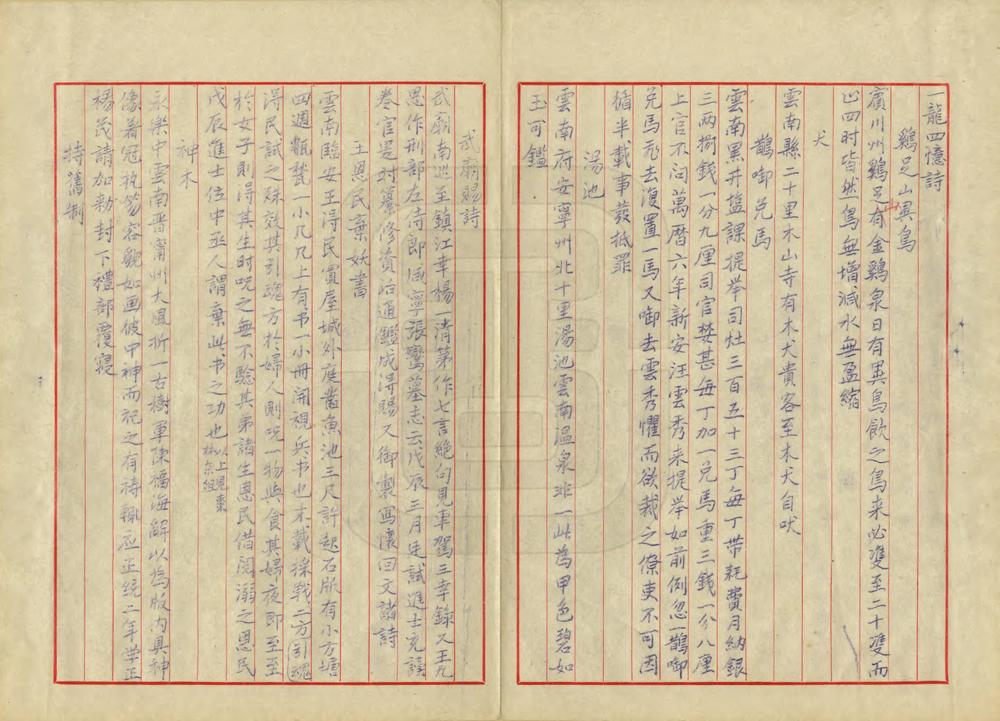 一龍四億詩
鷄足山異鳥
賓川州鷄足山有金鷄泉日有異鳥飲之鳥来必雙至二十雙而
止四时皆然鳥無增減水無盈縮
犬
雲南縣二十里水山寺有木犬貴客至木犬自吠
鵲啣兑馬
雲南黑井塩課提举司灶三百五十三丁每丁带耗費月納銀
三兩捌錢一分九厘司官婪甚每丁加一兑馬重三錢一分八厘
上官不问萬曆六年新安汪雲秀来提举如前例忽一鵲啣
兑馬飛去復置一馬又啣去雲秀懼而欲裁之僚吏不可因
循半載事發抵罪
湯池
雲南府安寧州北十里湯池雲南溫泉非一此為甲色碧如
玉可鑑
武廟賜詩
武廟南巡至鎮江幸楊一清第作七言絶句見車駕三幸録又王九
思作刑部左侍郎咸寧張鸞墓志云戊辰三月廷試進士充讀
卷官是时纂修資治通鑑成得賜又御製寫懷回文諸詩
王恩民棄妖書
雲南臨安王得民賃屋城外庭鑿魚池三尺許起石版有小方塘
四週甃甓一小几几上有书一小冊開視兵书也末載採戰二方引魂
得民試之殊效其引魂方於婦人則咒一物与食其婦夜即至至
於女子則得其生时咒之無不驗其弟諸生恩民借阅溺之恩民
戊辰進士位中丞人謂棄此书之功也以上見棗林杂俎
神木
永樂中雲南晋甯州大風折一古樹軍陳福海解以為版内具神
像着冠执笏容貌如画彼中神而祀之有祷輒应正统二年学正
楊茂請加勑封下禮部覆寝
持舊制